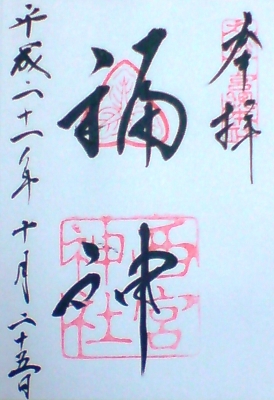 奉拝
福神
西宮神社
平成二十一年十月二十五日